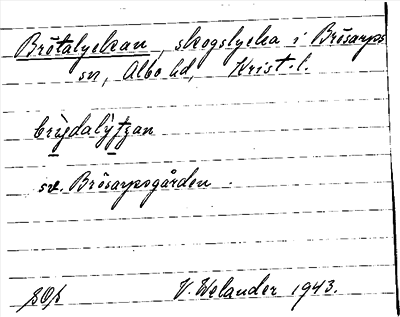 Brötalyckan, skogslycka i Brösarps
sn, Albo hd, Krist. l.
sv. Brösarpsgården.
V. Welander 1943.